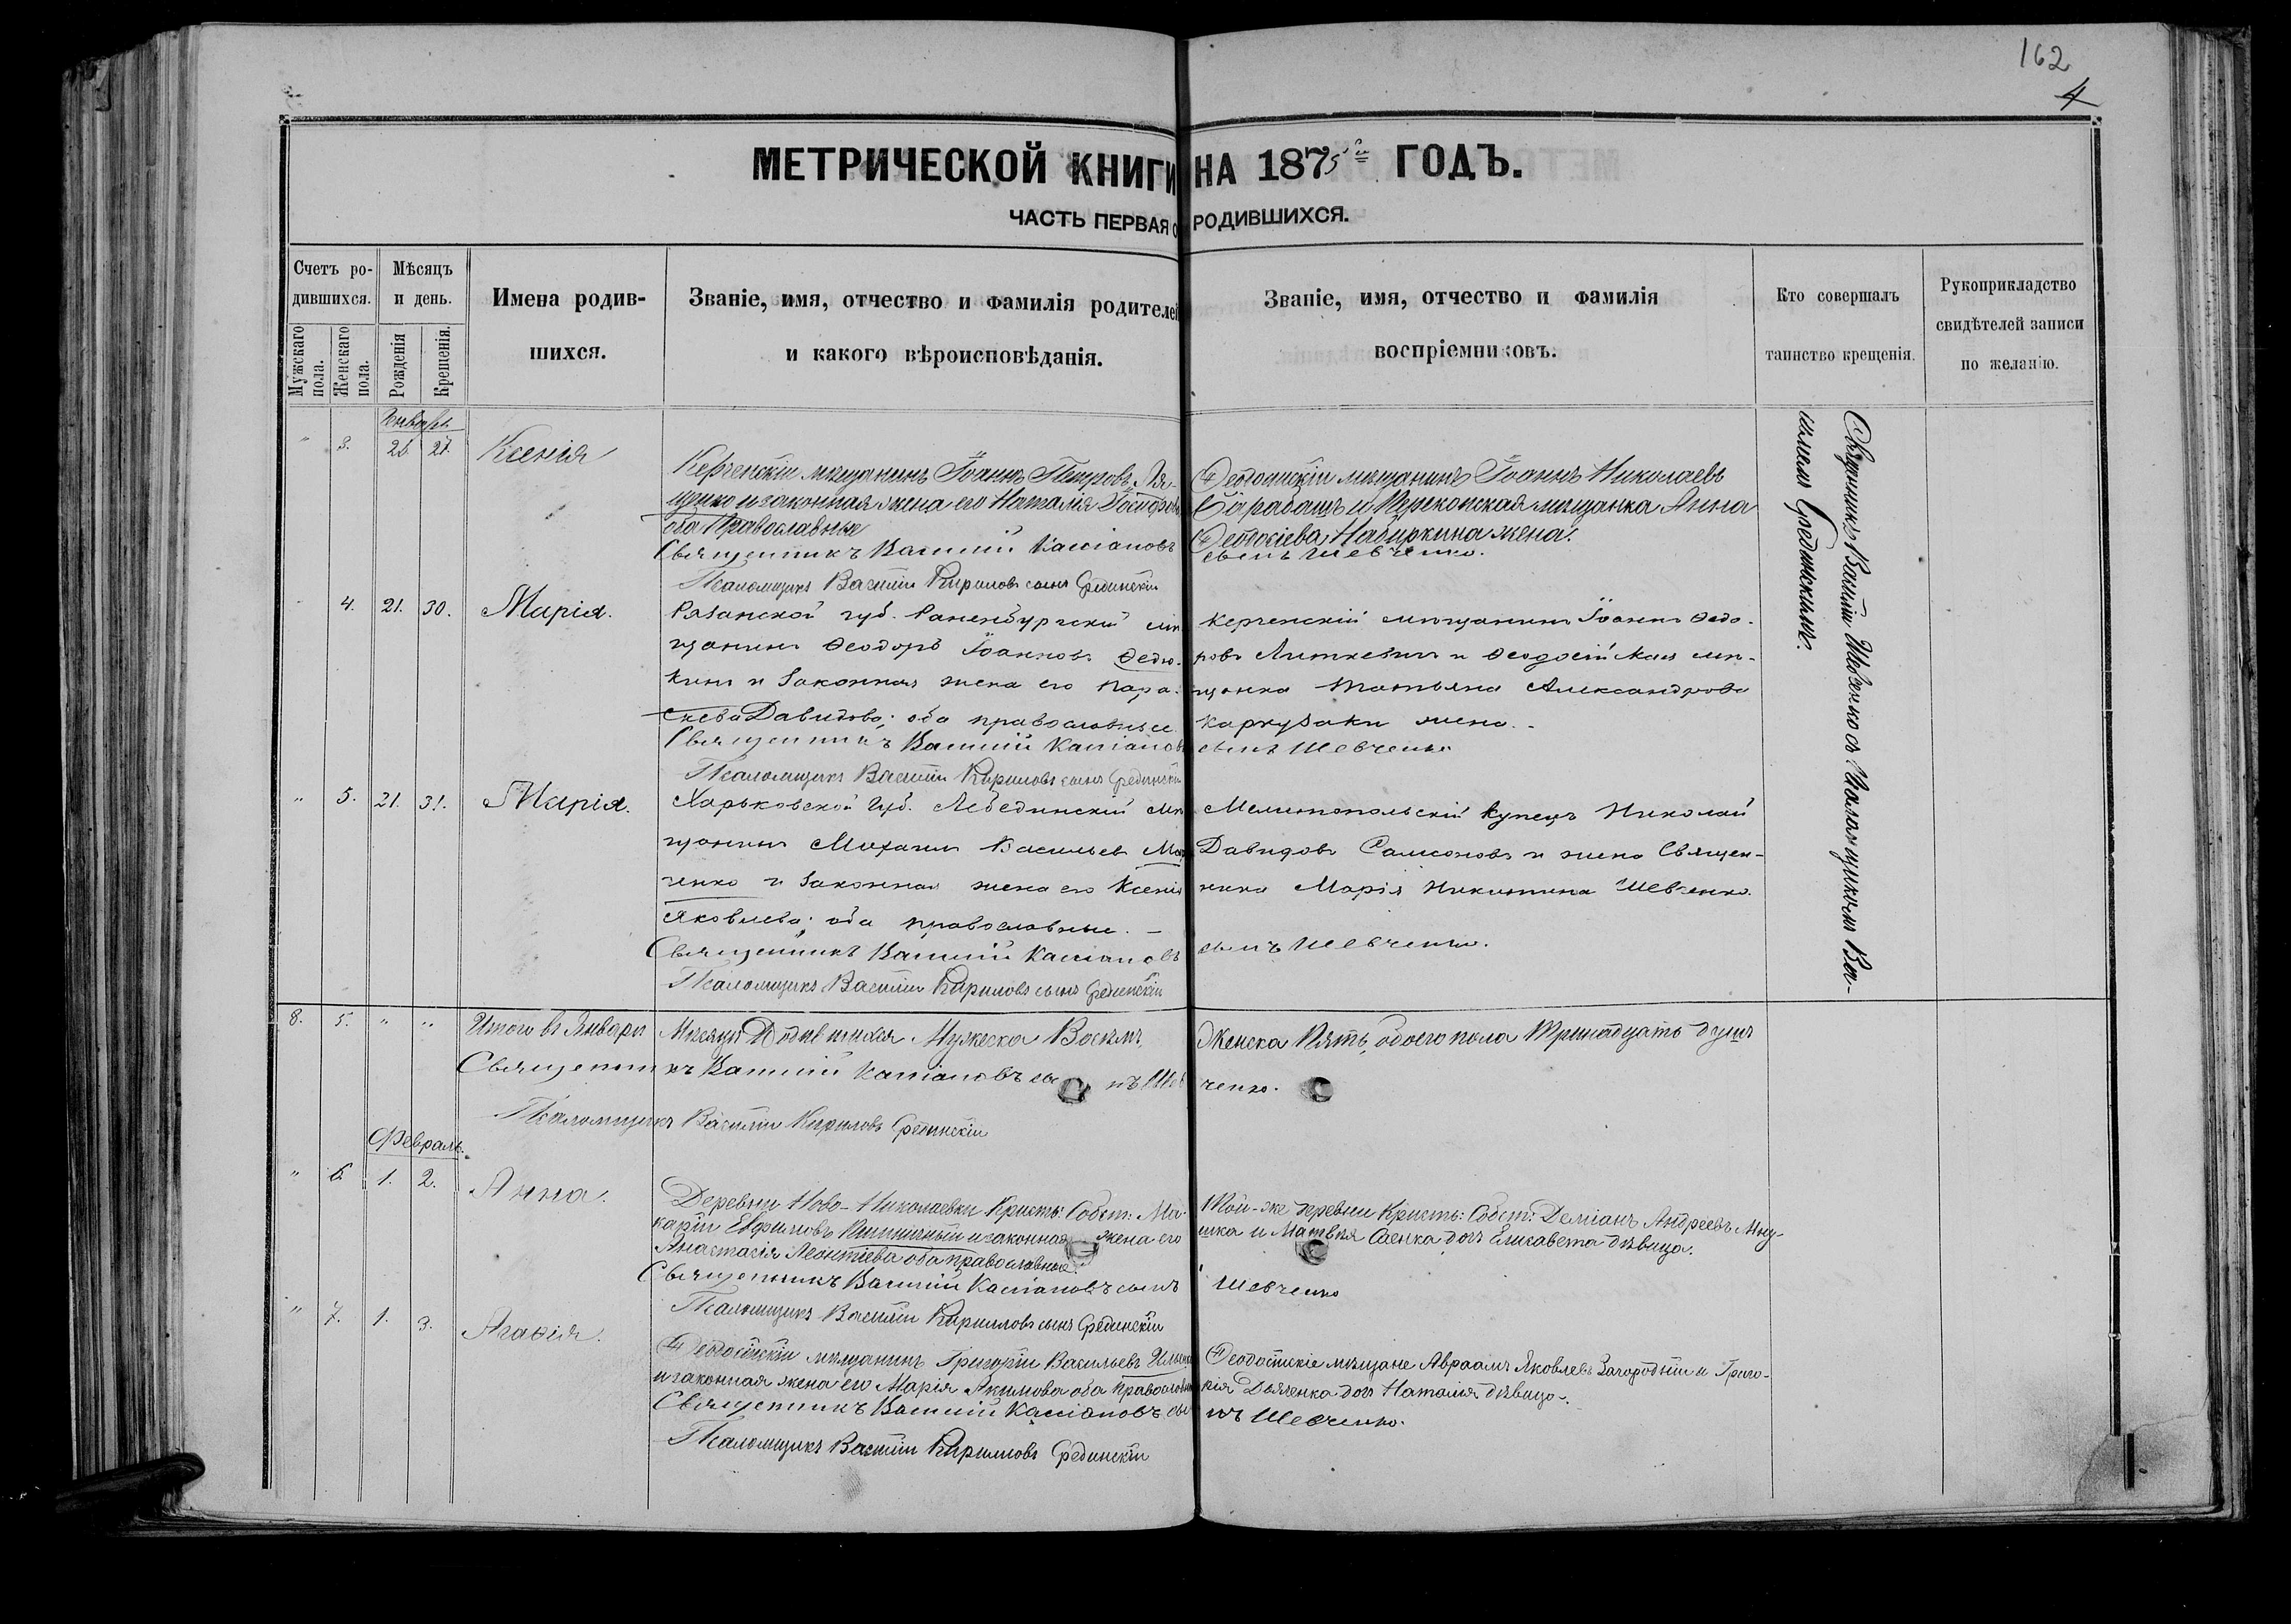 162
4
МЕТРИЧЕСКОЙ КНИГИ НА 1875й ГОДЪ.
ЧАСТЬ ПЕРВАЯ О РОДИВШИХСЯ.
Счетъ ро-
дившихся.
Мужскаго пола.
Женскаго пола.
Мѣсяцъ
и день.
Рожденія
Крещенія.
Имена родив-
шихся.
Званіе, имя, отчество и фамилія родителей
и какого вѣроисповѣданія.
Званіе, имя, отчество и фамилія
воспріемниковъ.
Кто совершалъ
таинство крещенія.
Рукоприкладство
свидѣтелей записи
по желанію.
Январь.
" 3. 27. Ксенія
Керченскій мѣщанинъ Іоаннъ Петровъ Ля-
щенко и законная жена его Наталія
оба Православные
Священникъ Василій Кассіановъ сынъ Шевченко.
Псаломщикъ Василій Кириловъ сынъ Срединскій
Феодосійскій мѣщанинъ Іоаннъ Николаевъ
Сарабашъ и Перекопская мѣщанка Анна
Феодосіева жена.
Священникъ Василій Шевченко съ Псаломщикомъ Ва-
силіемъ Срединскимъ.
4. 21. 30. Марія.
Рязанской губ. Раненбургскій мѣ-
щанинъ Ѳеодоръ Іоанновъ Ѳедю-
кинъ и законная жена его Пара-
скева Давидова; оба православные
Священникъ Василій Кассіановъ сынъ Шевченко
Псаломщикъ Василій Кириловъ сынъ Срединскій
Керченскій мѣщанинъ Іоаннъ Ѳедо-
ровъ Литкевичъ и Ѳеодосійская мѣ-
щанка Татьяна Александрова
Каркузаки жена.
" 5. 21. 31. Марія.
Харьковской Губ. Лебединскій мѣ-
щанинъ Михаилъ Васильевъ
ченко и законная жена его Ксенія
Яковлева; оба православные.
Священникъ Василій Кассіановъ сынъ Шевченко.
Псаломщикъ Василій Кириловъ сынъ Срединскій
Мелитопольскій купецъ Николай
Давидовъ Самсоновъ и жена Священ-
ника Марія Никитина Шевченко.
8. 5. " " Итого въ Январѣ Мѣсяцѣ Родившихся Мужеска Восемь, Женска Пять, обоего пола Тринадцать душъ
Священникъ Василій Кассіановъ сынъ Шевченко.
Псаломщикъ Василій Кириловъ Срединскій
Февраль.
" 6. 1. 2. Анна.
Деревни Ново-Николаевки Кресть: Собст: Ма-
карій Ефимовъ и законная жена его
Анастасія Леонтіева оба православные.
Священникъ Василій Кассіановъ сынъ Шевченко
Псаломщикъ Василій Кириловъ сынъ Срединскій
Той-же деревни Кресть: Собст: Деміанъ Андреевъ
и Матвѣя Саенка дочь Елисавета дѣвица.
" 7. 1. 3. Агафія.
Феодосійскій мѣщанинъ Григорій Васильевъ
и законная жена его Марія Акимова оба православные
Священникъ Василій Кассіановъ сынъ Шевченко.
Псаломщикъ Василій Кириловъ Срединскій
Феодосійскіе мѣщане Авраамъ Яковлевъ Загородній и Григо-
рія Дьяченка дочь Наталія дѣвица.